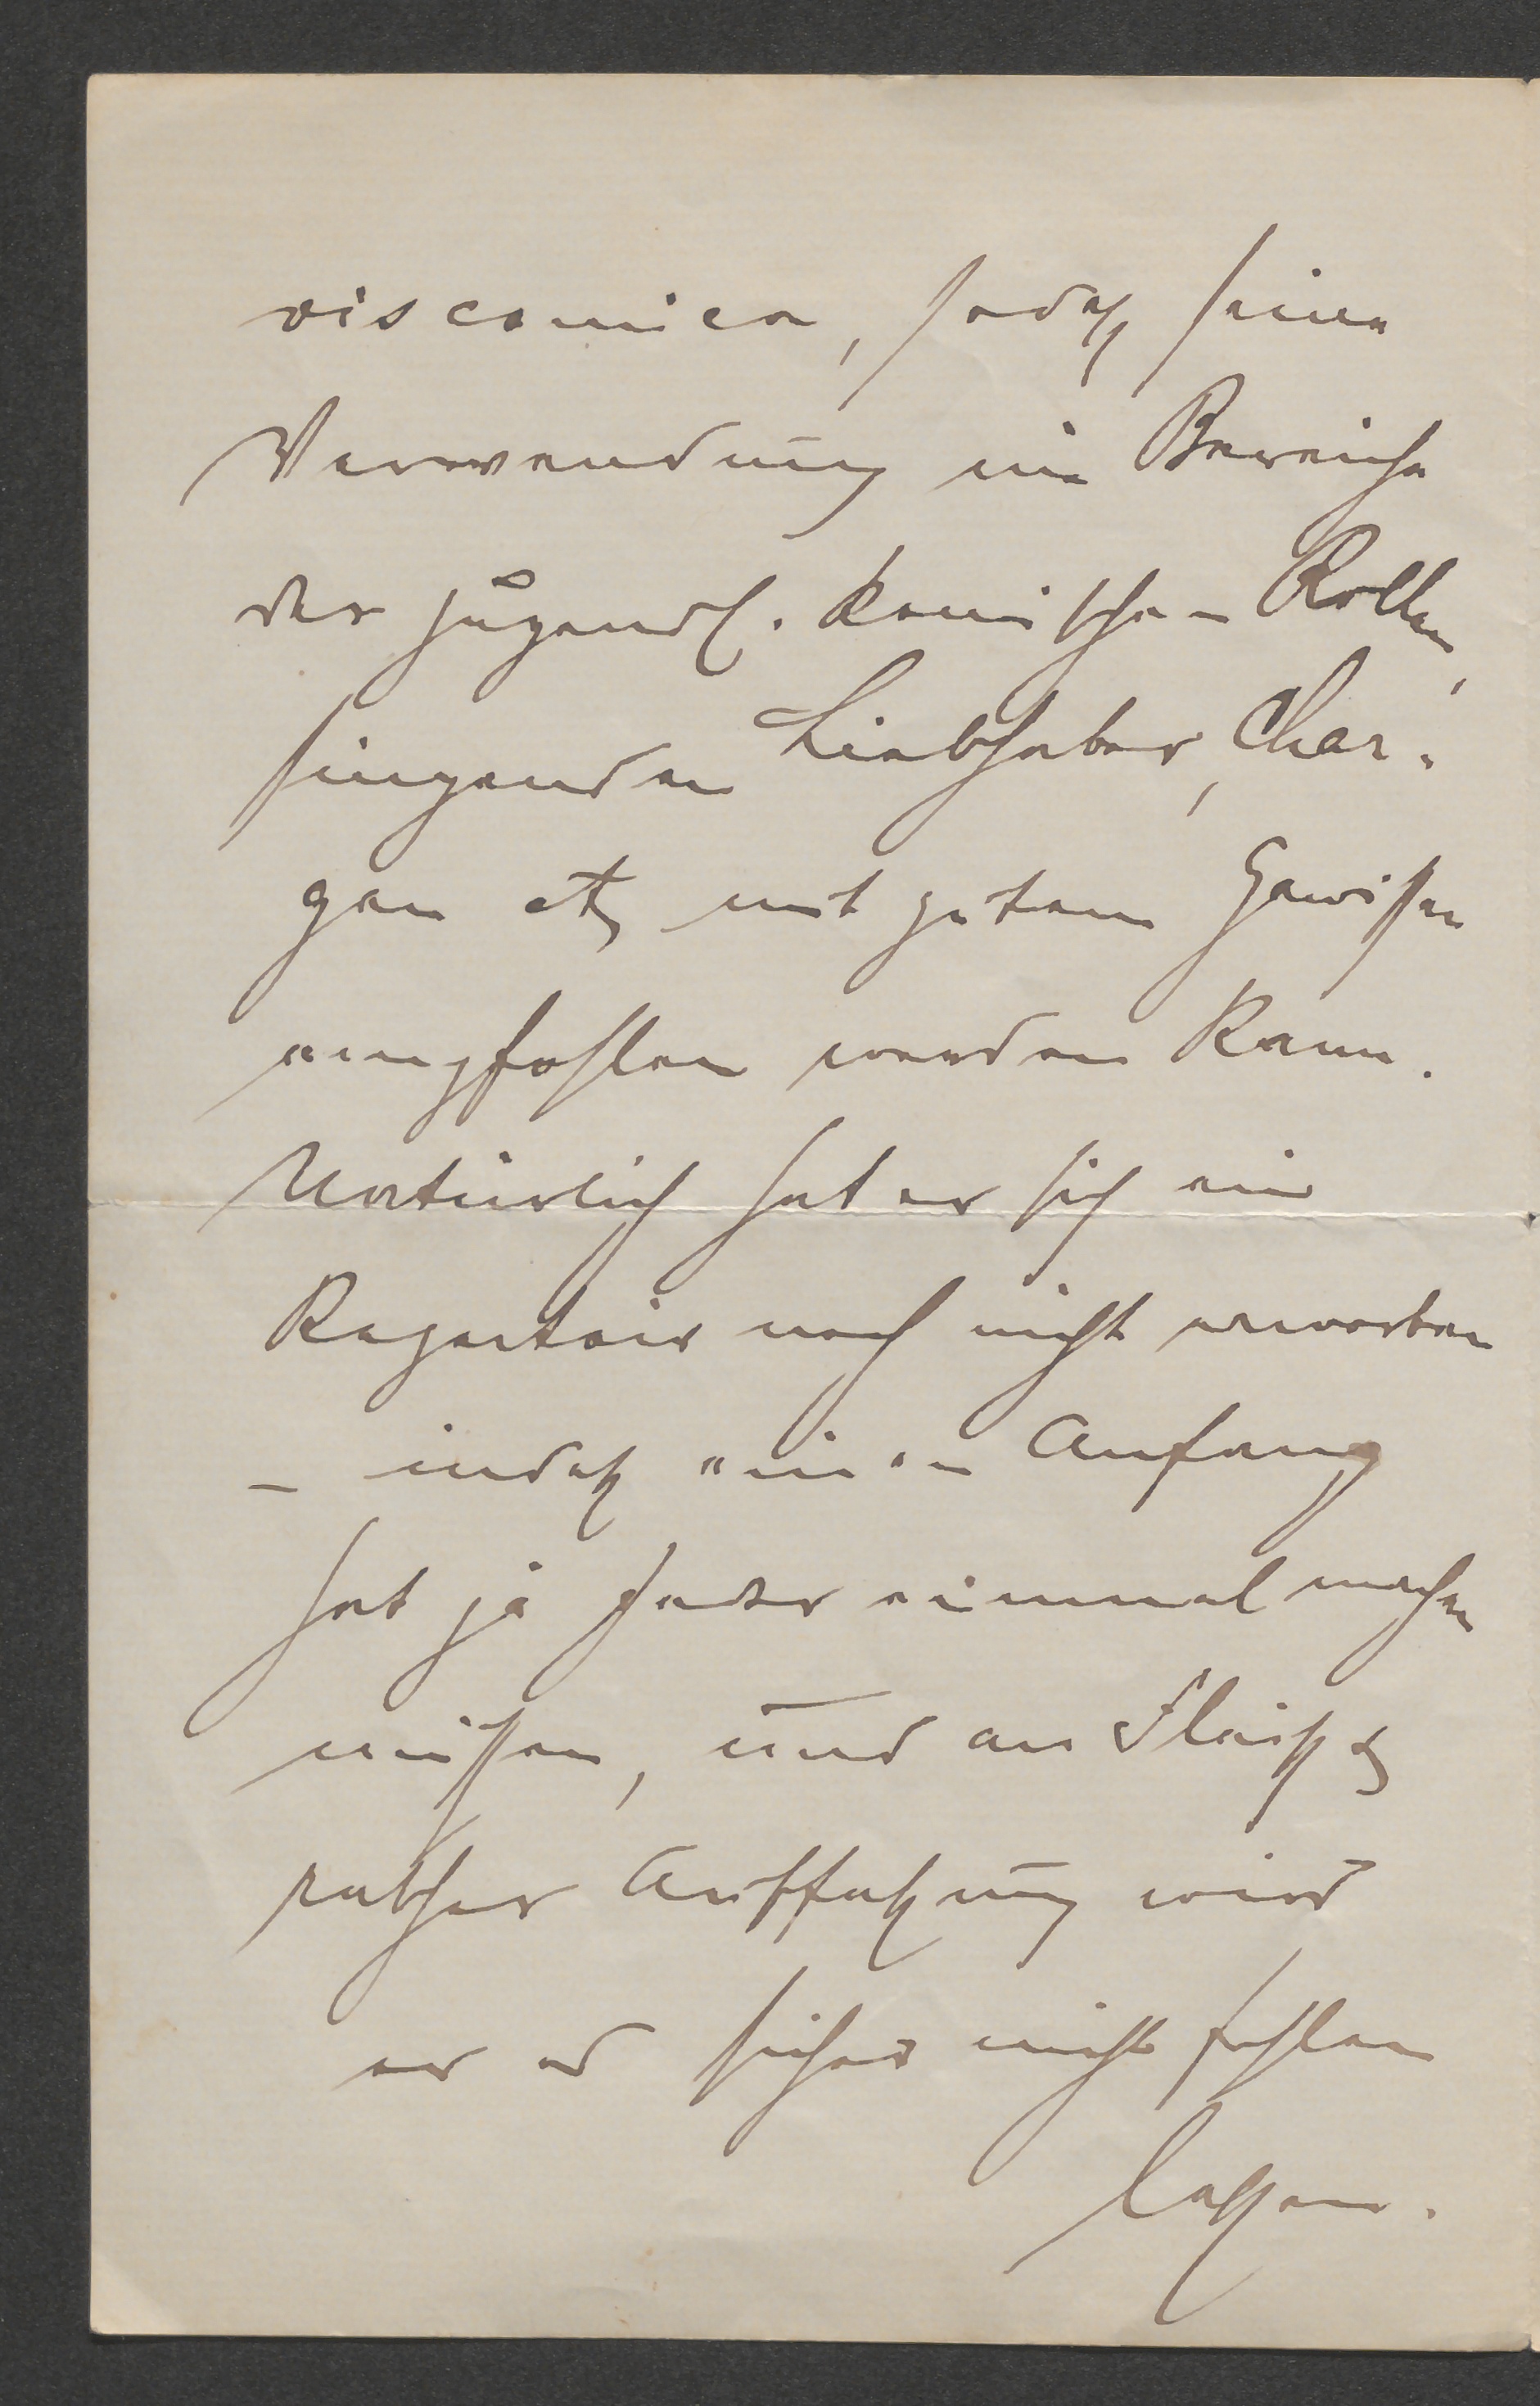 vis comica, sodaß seine
Verwendung im Bereiche
der jugendl. komischen Rollen,
singenden Liebhaber, Char-
gen etc mit gutem Gewissen
empfohlen werden kann.
Natürlich hat er sich ein
Repertoir noch nicht erworben
– indeß einen Anfang
hat ja Jeder einmal machen
müssen, und an Fleiß &
rascher Auffaßung wird
er es sicher nicht fehlen
lassen.